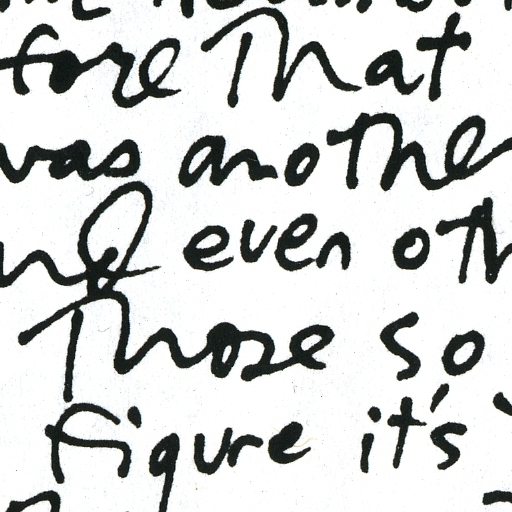 fore That
was another
and even oth
Those so
figure it's